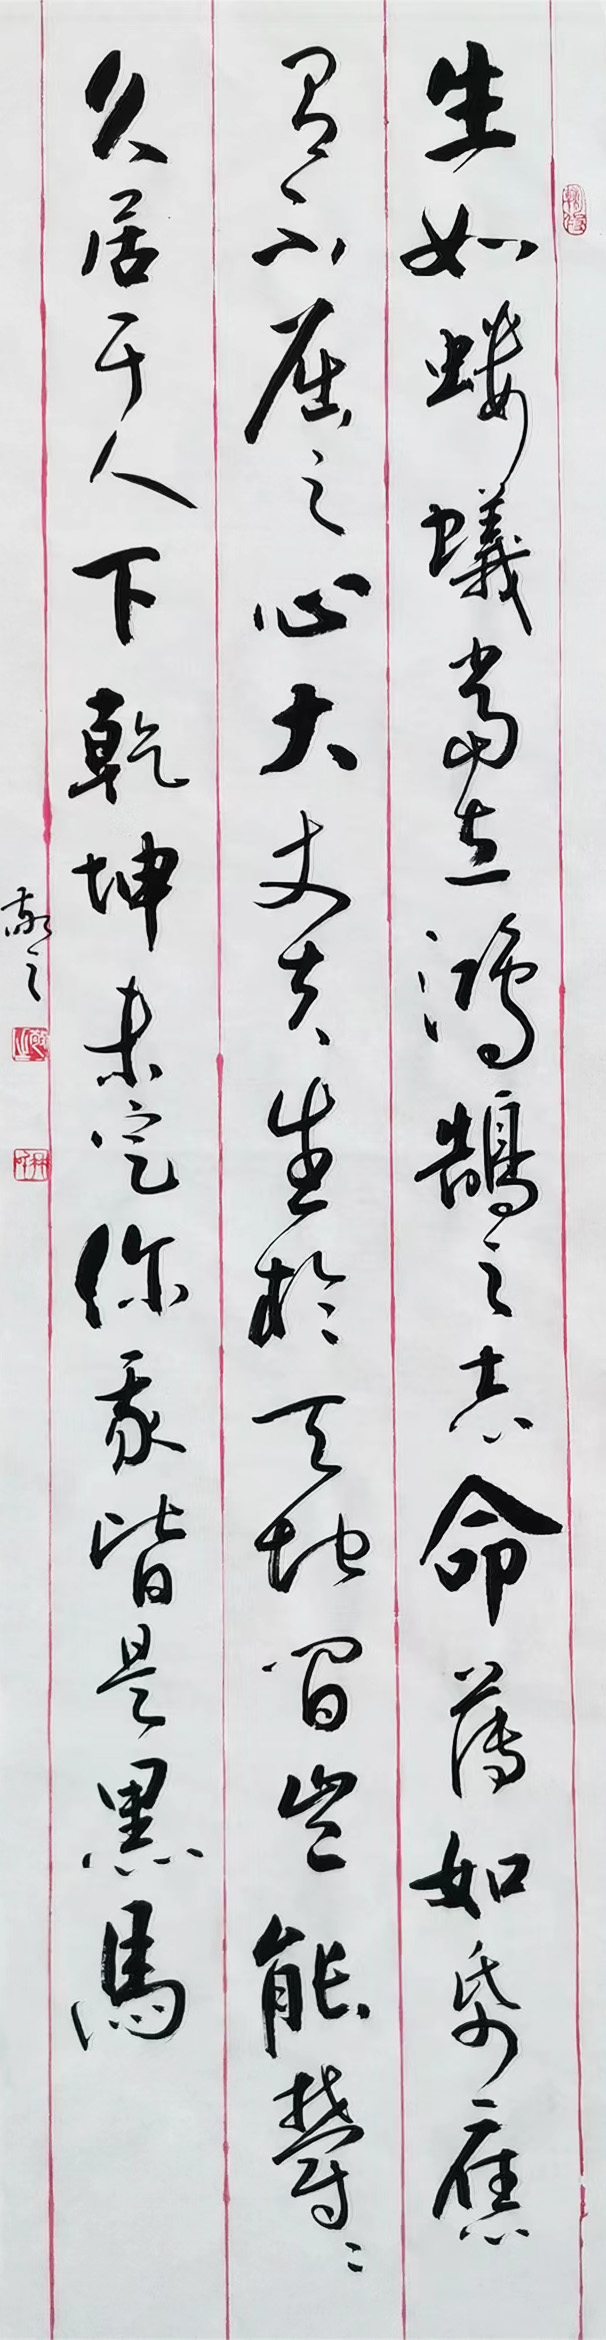 生如螻蟻當立鴻鵠之志命薄如帋應
有不屈之心大丈夫生於天地間豈能鬱〻
久居于人下乾坤未定你我皆是黑馬
敬之